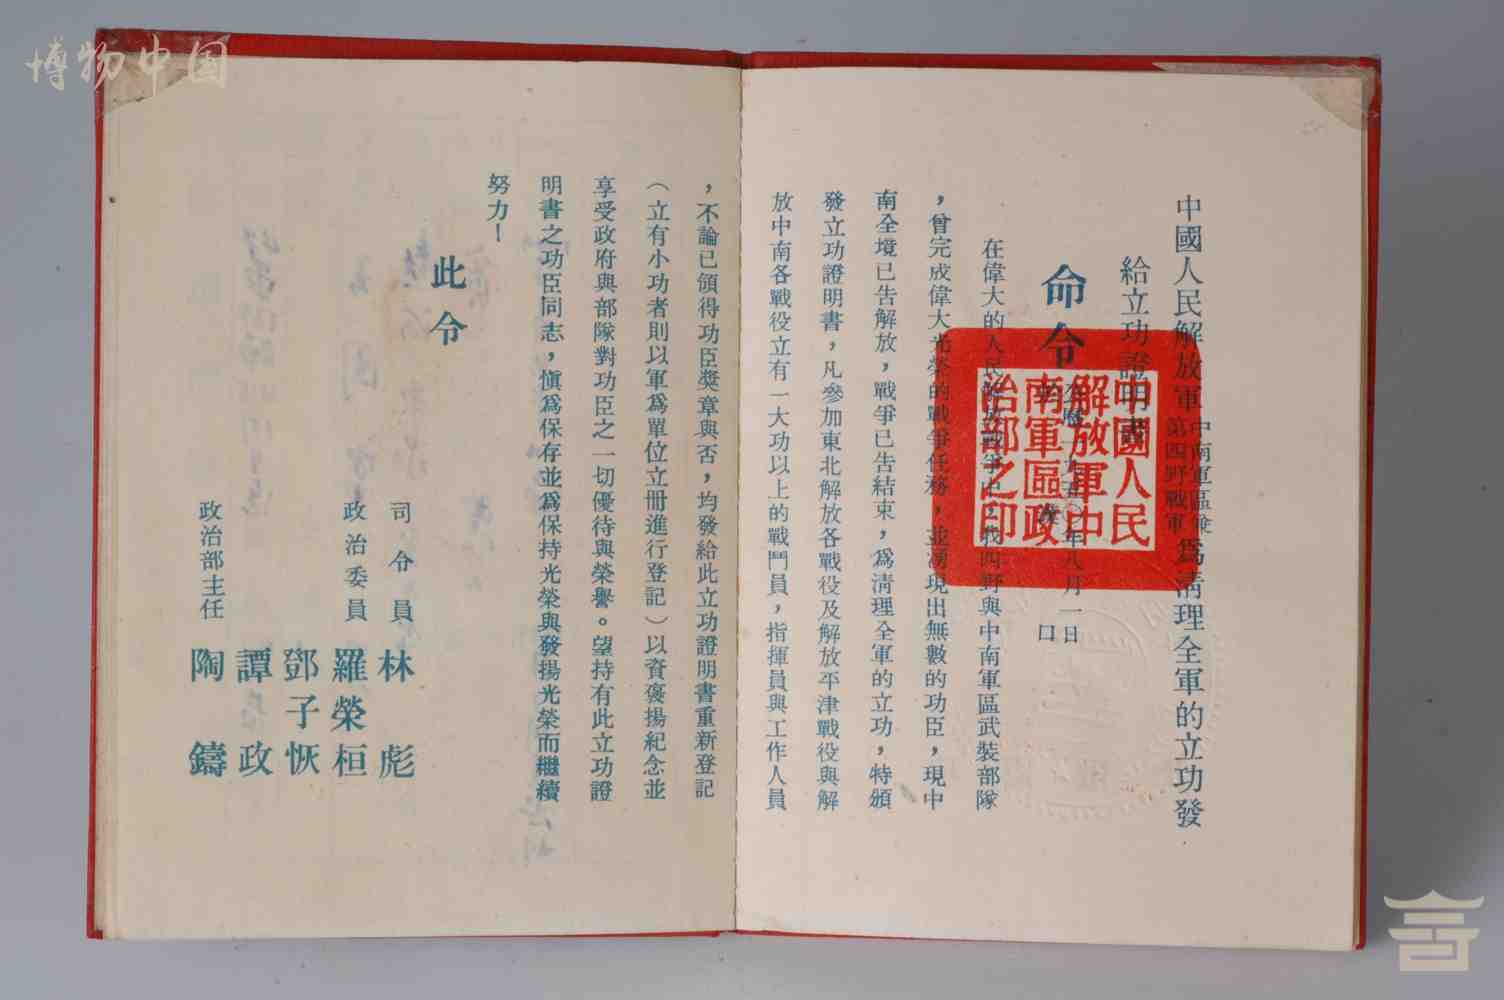 博物中国
中國人民解放軍中南軍區兼第四野戰軍爲清理全軍的立功發
給立功證明書
命令
公曆一九五〇年八月一日
在偉大的人民解放戰爭中，我四野與中南軍區武裝部隊
，曾完成偉大光榮的戰爭任務，並湧現出無數的功臣，現中
南全境已告解放，戰爭已告結束，爲清理全軍的立功，特頒
發立功證明書，凡參加東北解放各戰役及解放平津戰役與解
放中南各戰役立有一大功以上的戰鬥員，指揮員與工作人員
中國人民解放軍中南軍區政治部之印
，不論已領得功臣獎章與否，均發給此立功證明書重新登記
（立有小功者則以軍爲單位立冊進行登記）以資褒揚紀念並
享受政府與部隊對功臣之一切優待與榮譽。望持有此立功證
明書之功臣同志，愼爲保存並爲保持光榮與發揚光榮而繼續
努力！
此令
司令員 林彪
政治委員 羅榮桓
鄧子恢
譚政
政治部主任 陶鑄